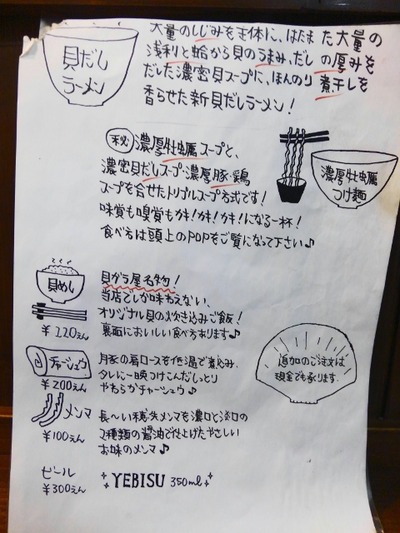 貝だし
ラーメン
大量のしじみを主体に、はたまた大量の
浅利と蛤から貝のうまみ、だしの厚みを
だした濃密貝スープに、ほんのり煮干しを
香らせた新貝だしラーメン!
㊙濃厚牡蠣スープと、
濃密貝だしスープ・濃厚豚・鶏
スープを合せたトリプルスープ方式です!
味覚も嗅覚もカキ!カキ!カキ!になる一杯!
食べ方は頭上のPOPをご覧になって下さい♪
濃厚牡蠣
つけ麺
貝めし
¥220えん
貝がら屋名物!
当店でしか味わえない、
オリジナル貝の炊き込みご飯!
裏面においしい食べ方あります♪
チャーシュウ
¥200えん
豚の肩ロースを低温で煮込み、
タレに一晩つけこんだしっとり
やわらかチャーシュウ♪
メンマ
¥100えん
長〜い穂先メンマを濃口と淡口の
2種類の醤油で仕上げたやさしい
お味のメンマ♪
追加のご注文は
現金でも承ります。
ビール
¥300えん
YEBISU 350ml